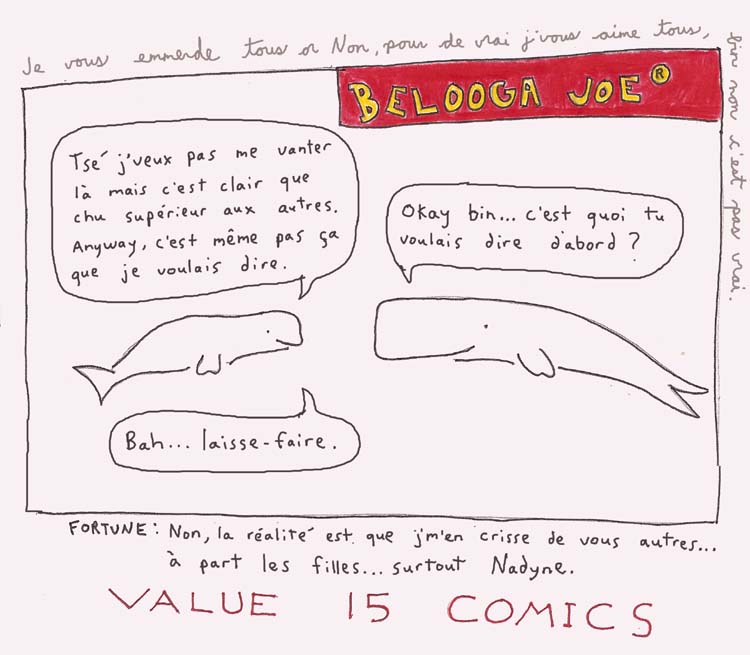 Je vous emmerde tous or Non, pour de vrai j'vous aime tous,
bin non c'est pas vrai.
BELOOGA JOE®
Tsé j'veux pas me vanter
là mais c'est clair que
chu supérieur aux autres.
Anyway, c'est même pas ça
que je voulais dire.
Okay bin... c'est quoi tu
voulais dire d'abord ?
Bah... laisse-faire.
FORTUNE: Non, la réalité est que j'm'en crisse de vous autres...
à part les filles... surtout Nadyne.
VALUE 15 COMICS